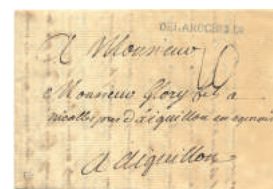 DELAROCHELLE
A Monsieur
Monsieur Glory fils a
nicolle pres d'aiguillon en agenois
A aiguillon